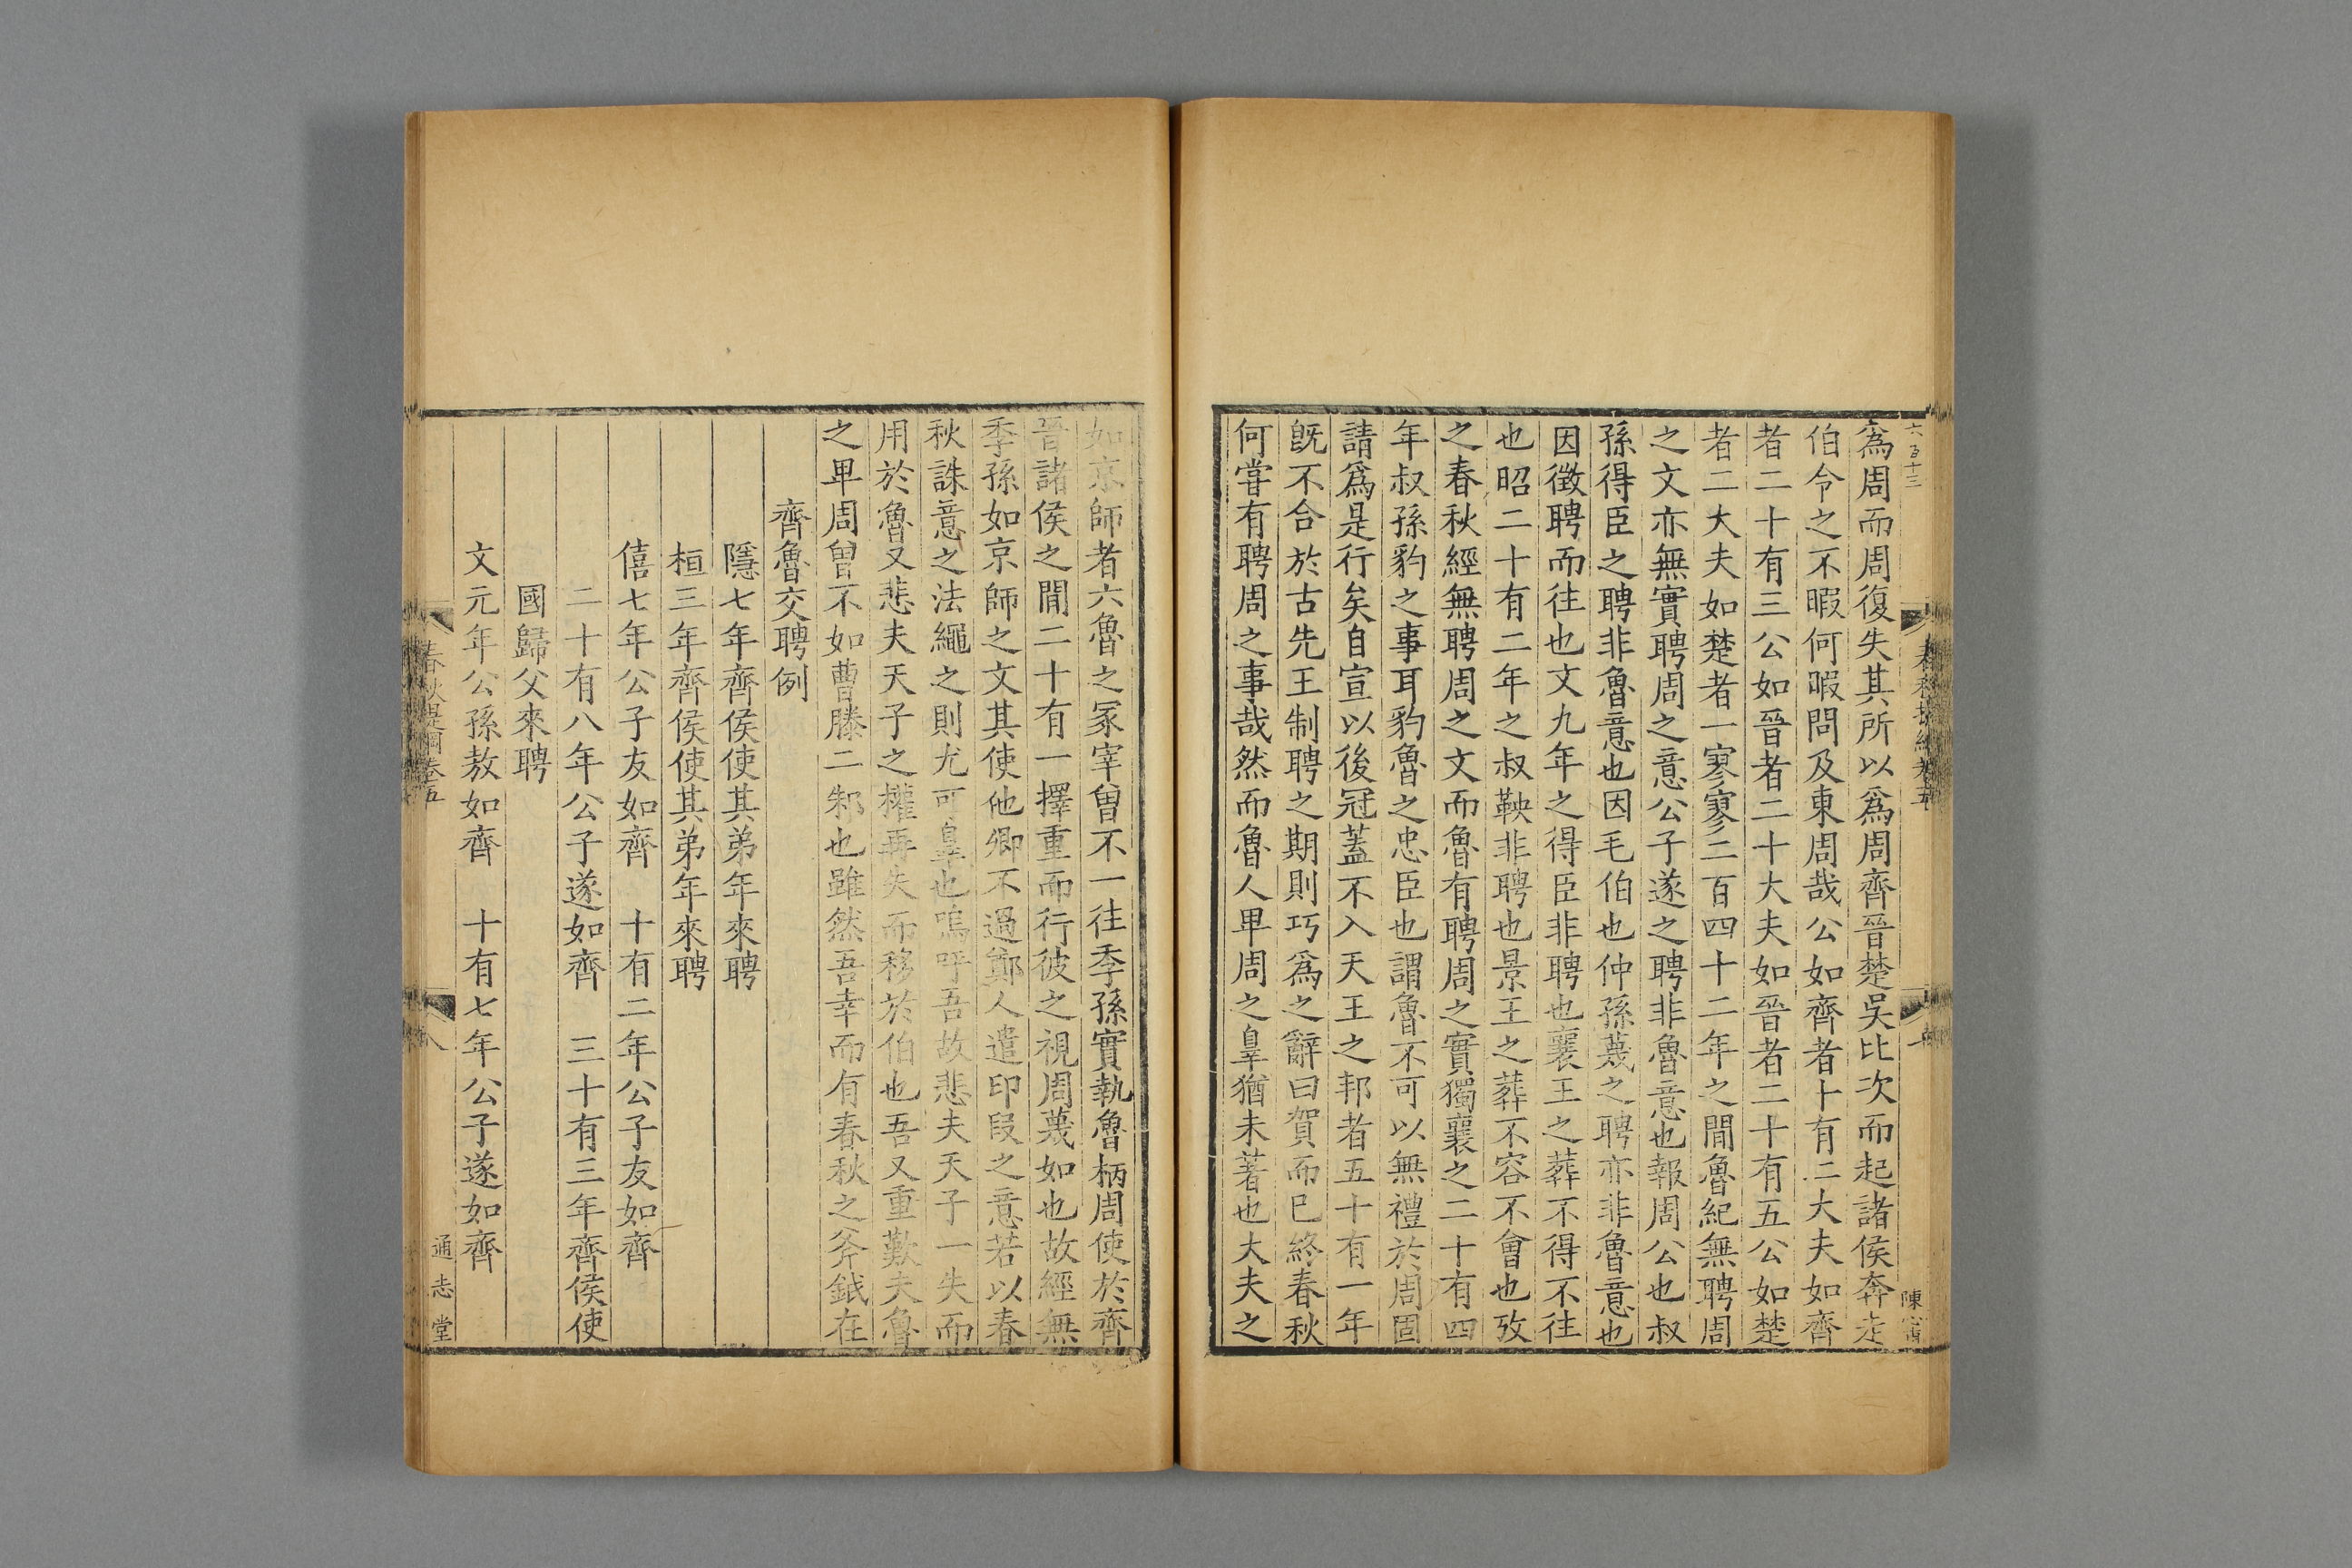 六百十三
爲周而周復失其所以爲周齊晉楚吳比次而起諸侯奔走
伯令之不暇何暇問及東周哉公如齊者十有二大夫如齊
者二十有三公如晉者二十大夫如晉者二十有五公如楚
者二大夫如楚者一寥寥二百四十二年之間魯紀無聘周
之文亦無實聘周之意公子遂之聘非魯意也報周公也叔
孫得臣之聘非魯意也因毛伯也仲孫蔑之聘亦非魯意也
因徵聘而往也文九年之得臣非聘也襄王之葬不得不往
也昭二十有二年之叔鞅非聘也景王之葬不容不會也攷
之春秋經無聘周之文而魯有聘周之實獨襄之二十有四
年叔孫豹之事耳豹魯之忠臣也謂魯不可以無禮於周固
請爲是行矣自宣以後冠蓋不入天王之邦者五十有一年
旣不合於古先王制聘之期則巧爲之辭曰賀而已終春秋
何嘗有聘周之事哉然而魯人卑周之辠猶未著也大夫之
陳
如京師者六魯之冢宰曾不一往季孫實執魯柄周使於齊
晉諸侯之間二十有一擇重而行彼之視周蔑如也故經無
季孫如京師之文其使他卿不過鄭人遣印段之意若以春
秋誅意之法繩之則尤可辠也嗚呼吾故悲夫天子一失而
用於魯又悲夫天子之權再失而移於伯也吾又重歎夫魯
之卑周曾不如曹滕二邾也雖然吾幸而有春秋之斧鉞在
齊魯交聘例
隱七年齊侯使其弟年來聘
桓三年齊侯使其弟年來聘
僖七年公子友如齊　十有二年公子友如齊
二十有八年公子遂如齊　三十有三年齊侯使
國歸父來聘
文元年公孫敖如齊　十有七年公子遂如齊
春秋提綱卷五
八
通志堂